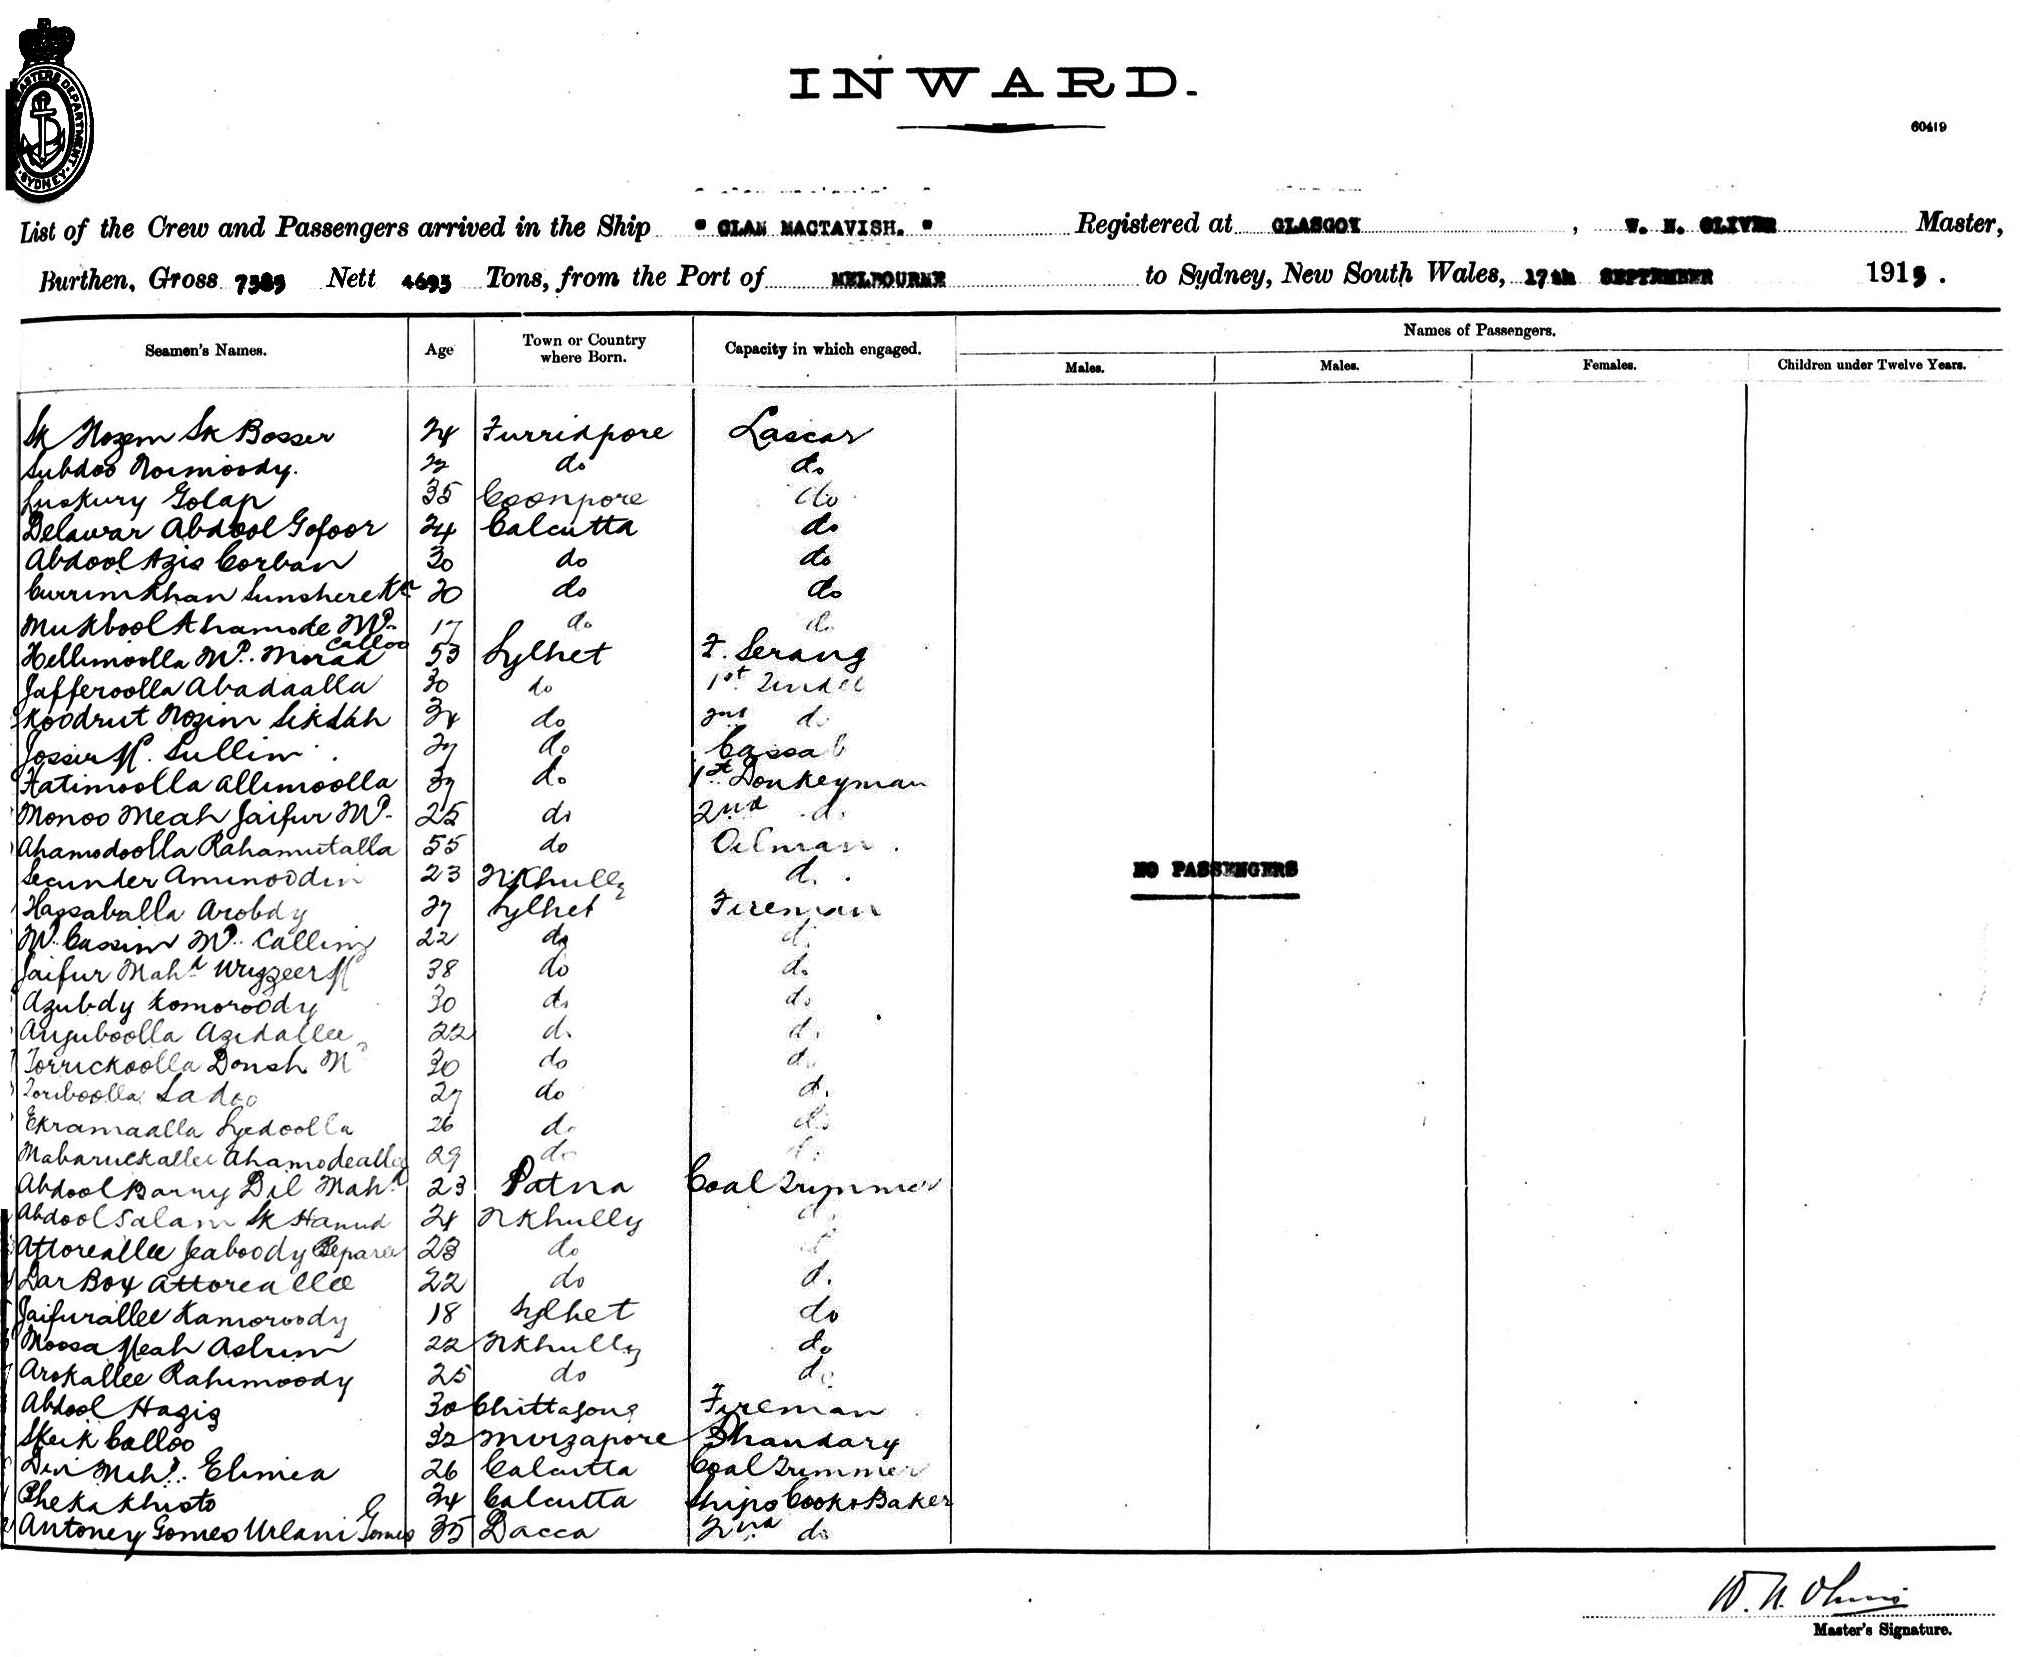 INWARD.
60419
List of the Crew and Passengers arrived in the Ship " CLAN MACTAVISH. " Registered at GLASGOW , W. N. OLIVER Master,
Burthen, Gross 7385 Nett 4693 Tons, from the Port of MELBOURNE to Sydney, New South Wales, 17th SEPTEMBER 1915.
Seamen's Names. Age Town or Country where Born. Capacity in which engaged. Names of Passengers.
Males. Males. Females. Children under Twelve Years.
Sk Nozem Sk Bosser 24 Furridpore Lascar
Subdoo Noimoody. do do
Luskury Golap 35 Coonpore do
Delawar Abdool Gofoor 24 Calcutta do
Abdool Azis Corban 30 do do
Currimkhan Sunshere Kn 20 do do
Mukbool Ahamode Md. 17 do do
Hellimoolla Md. Morad Calloo 53 Sylhet F. Serang
Jafferoolla Abadaalla 30 do 1st Tindel
Koodrut Nozim Sikdah 34 do 2nd do
Josser M. Sullim 37 do Cassab
Hatimoolla Allimoolla 37 do 1st Donkeyman
Monoo Meah Jaifur Md. 25 do 2nd do
Ahamodoolla Rahamutalla 55 do Oilman
Secunder Aminoodin 23 NKhully do
Hassaballa Arobdy 27 Sylhet Fireman
Md. Cassim Md. Calling 22 do do
Jaifur Mahd Wuzzeer M 38 do do
Azubdy Komoroody 30 do do
Anguboolla Azidallee 22 do do
Torrickoolla Donsh M 30 do do
Toriboolla Sadoo 27 do do
Ekramaalla Syedoolla 26 do do
Mabaruckallee Ahamodeallee 29 do do
Abdool Barry Dil Mahd 23 Patna Coal Trimmer
Abdool Salam Sk Hamid 24 NKhully do
Attoreallee Jeaboody Beparee 23 do do
Dar Box Attoreallee 22 do do
Jaifurallee Kamoroody 18 Sylhet do
Moosa Meah Aslum 22 NKhully do
Arokallee Rahimoody 25 do do
Abdool Hagiz 30 Chittagong Fireman
Skeik Calloo 32 Mirzapore Bhandary
Din Mahd. Elimea 26 Calcutta Coal Trimmer
Pheka Khisto 34 Calcutta Ships Cook & Baker
Antoney Gomes Urlani Gomes 35 Dacca 2nd do
NO PASSENGERS
Master's Signature.